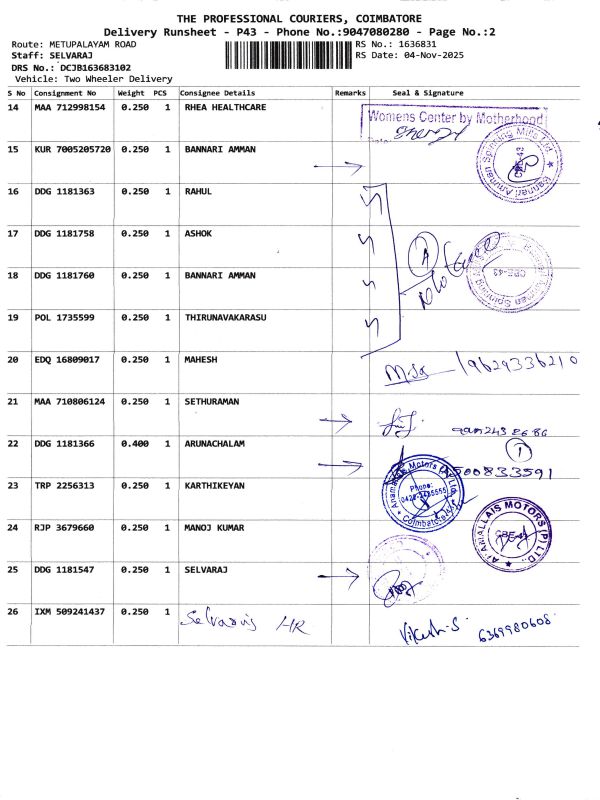 THE PROFESSIONAL COURIERS, COIMBATORE
Delivery Runsheet - P43 - Phone No.:9047080280 - Page No.:2
Route: METUPALAYAM ROAD RS No.: 1636831
Staff: SELVARAJ RS Date: 04-Nov-2025
DRS No.: DCJB163683102
Vehicle: Two Wheeler Delivery
S No Consignment No Weight PCS Consignee Details Remarks Seal & Signature
14 MAA 712998154 0.250 1 RHEA HEALTHCARE
Womens Center by Motherhood
15 KUR 7005205720 0.250 1 BANNARI AMMAN
Bannari Amman Spinning Mills Ltd
CBE-43
16 DDG 1181363 0.250 1 RAHUL
17 DDG 1181758 0.250 1 ASHOK
A
18 DDG 1181760 0.250 1 BANNARI AMMAN
CBE-43
19 POL 1735599 0.250 1 THIRUNAVAKARASU
20 EDQ 16809017 0.250 1 MAHESH
9629336210
21 MAA 710806124 0.250 1 SETHURAMAN
22 DDG 1181366 0.400 1 ARUNACHALAM
1
23 TRP 2256313 0.250 1 KARTHIKEYAN
Phone:
Coimbatore
24 RJP 3679660 0.250 1 MANOJ KUMAR
ANAMALLAIS MOTORS (P) LTD.
25 DDG 1181547 0.250 1 SELVARAJ
26 IXM 509241437 0.250 1 Selvaraj HR
Vikash.S 6369980608